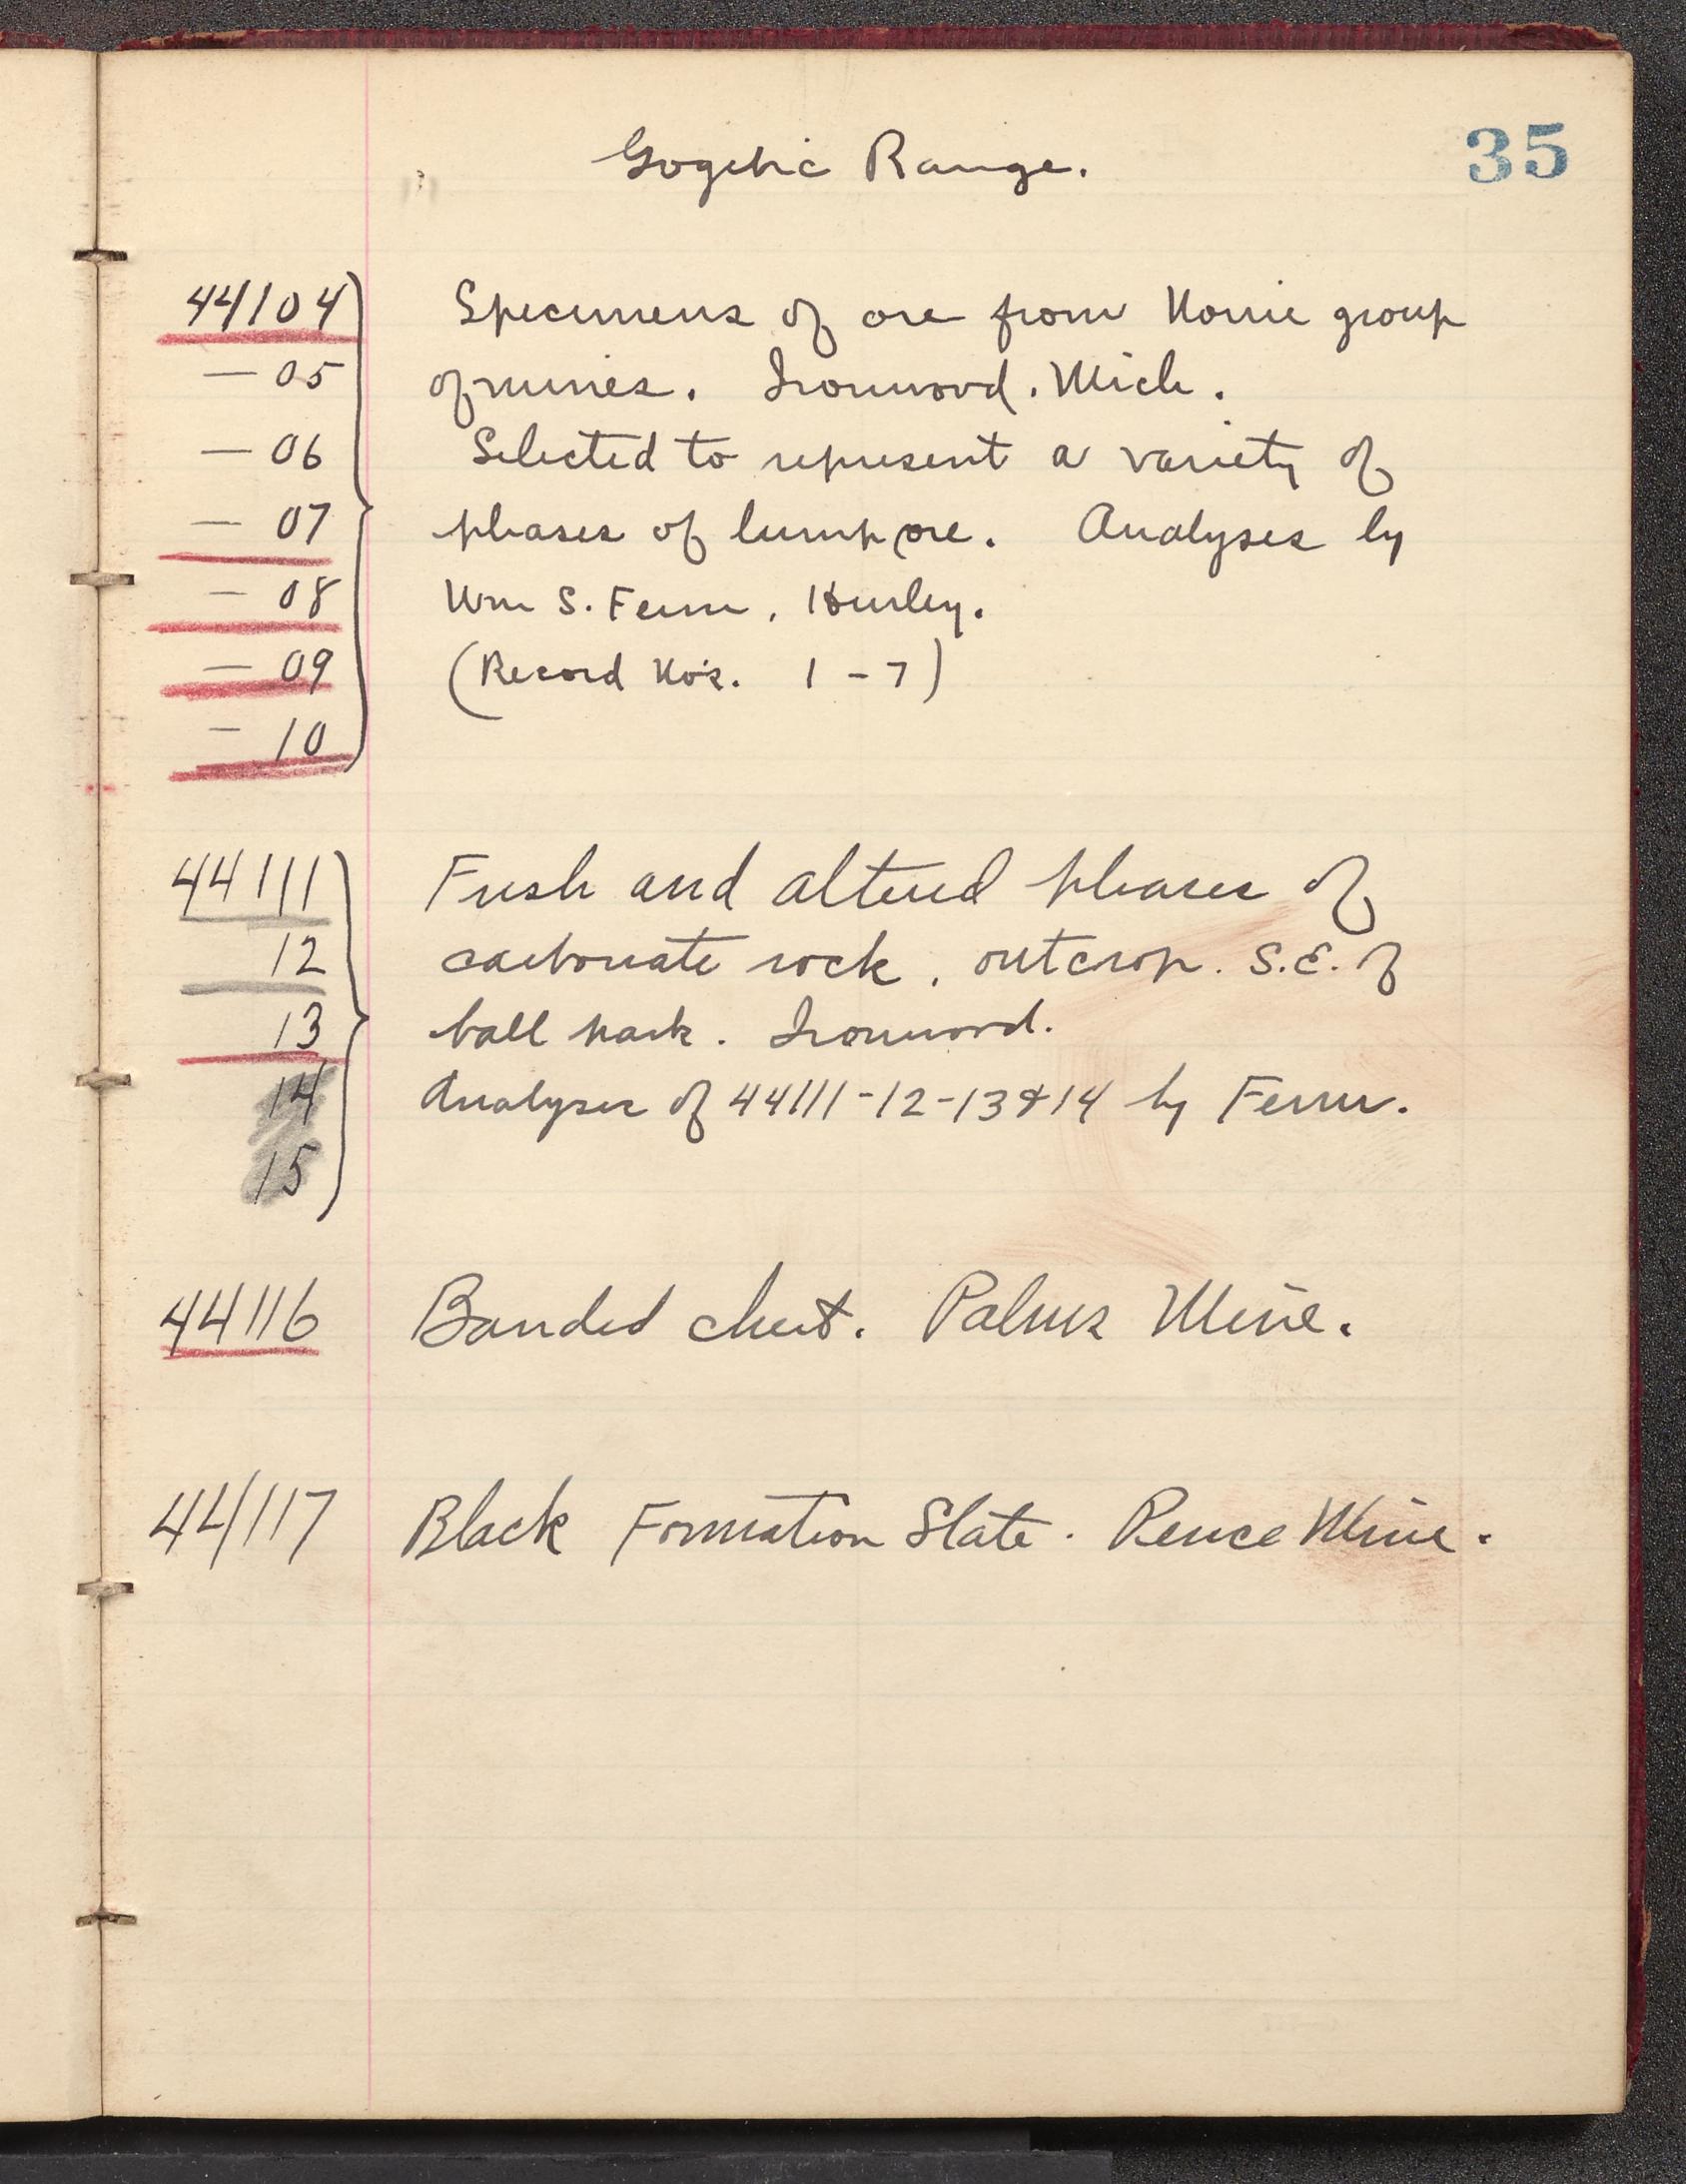 35
Gogebic Range.
44104 Specimens of ore from Norrie group
— 05 of mines. Ironwood. Mich.
— 06 Selected to represent a variety of
— 07 phases of lump ore. Analyses by
— 08 Wm S. Fenn, Hurley.
— 09 (Record No's. 1 - 7)
— 10
44111 Fresh and altered phases of
12 carbonate rock, outcrop. S.E. of
13 ball park. Ironwood.
14 Analyses of 44111-12-13&14 by Fenn.
15
44116 Banded chert. Palms Mine.
44117 Black Formation Slate. Pence Mine.